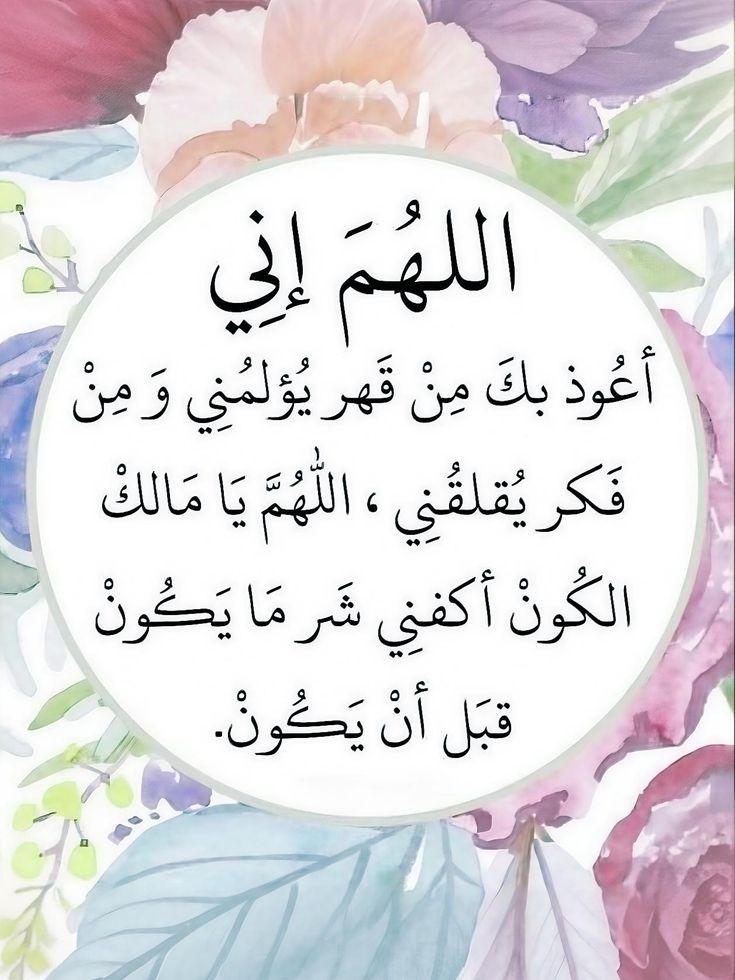 اللهُمَ إنِي
أعُوذ بكَ مِنْ قَهر يُؤلمُنِي وَ مِنْ
فَكر يُقلقُنِي ، اللّٰهُمَّ يَا مَالكْ
الكُونْ أكفنِي شَر مَا يَكُونْ
قبَل أنْ يَكُونْ.